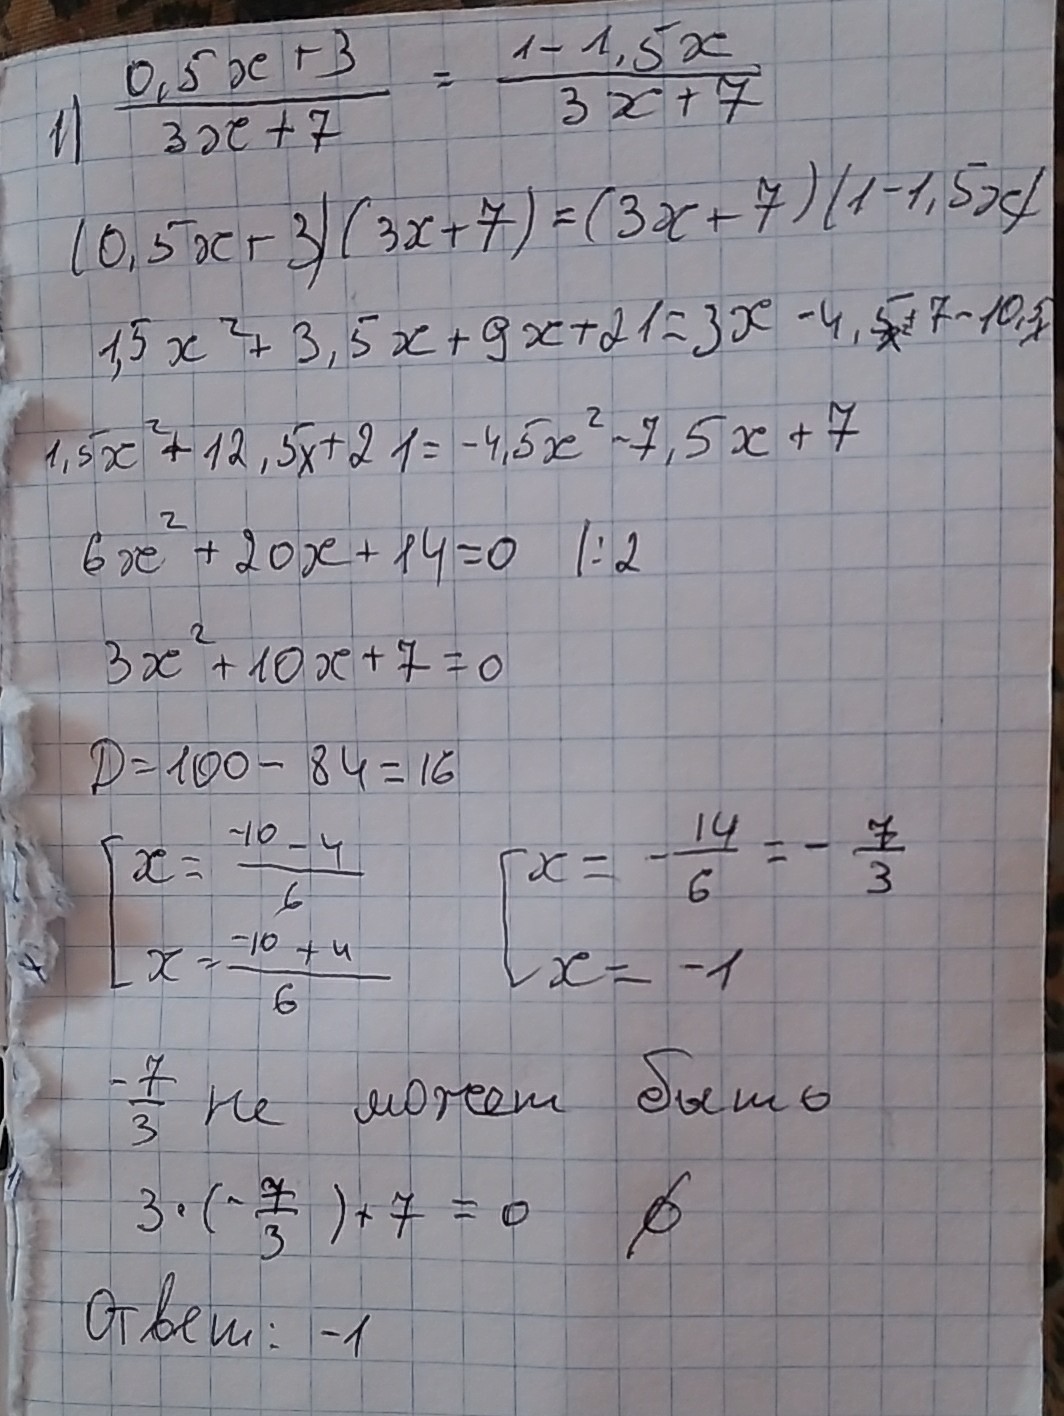 1) (0,5x+3)/(3x+7) = (1-1,5x)/(3x+7)
(0,5x+3)(3x+7)=(3x+7)(1-1,5x)
1,5x²+3,5x+9x+21=3x-4,5x+7-10,5x
1,5x²+12,5x+21=-4,5x²-7,5x+7
6x²+20x+14=0 |:2
3x²+10x+7=0
D=100-84=16
[x=(-10-4)/6 [x=-14/6=-7/3
x=(-10+4)/6 x=-1
-7/3 не может быть
3·(-7/3)+7=0 ∅
Ответ: -1